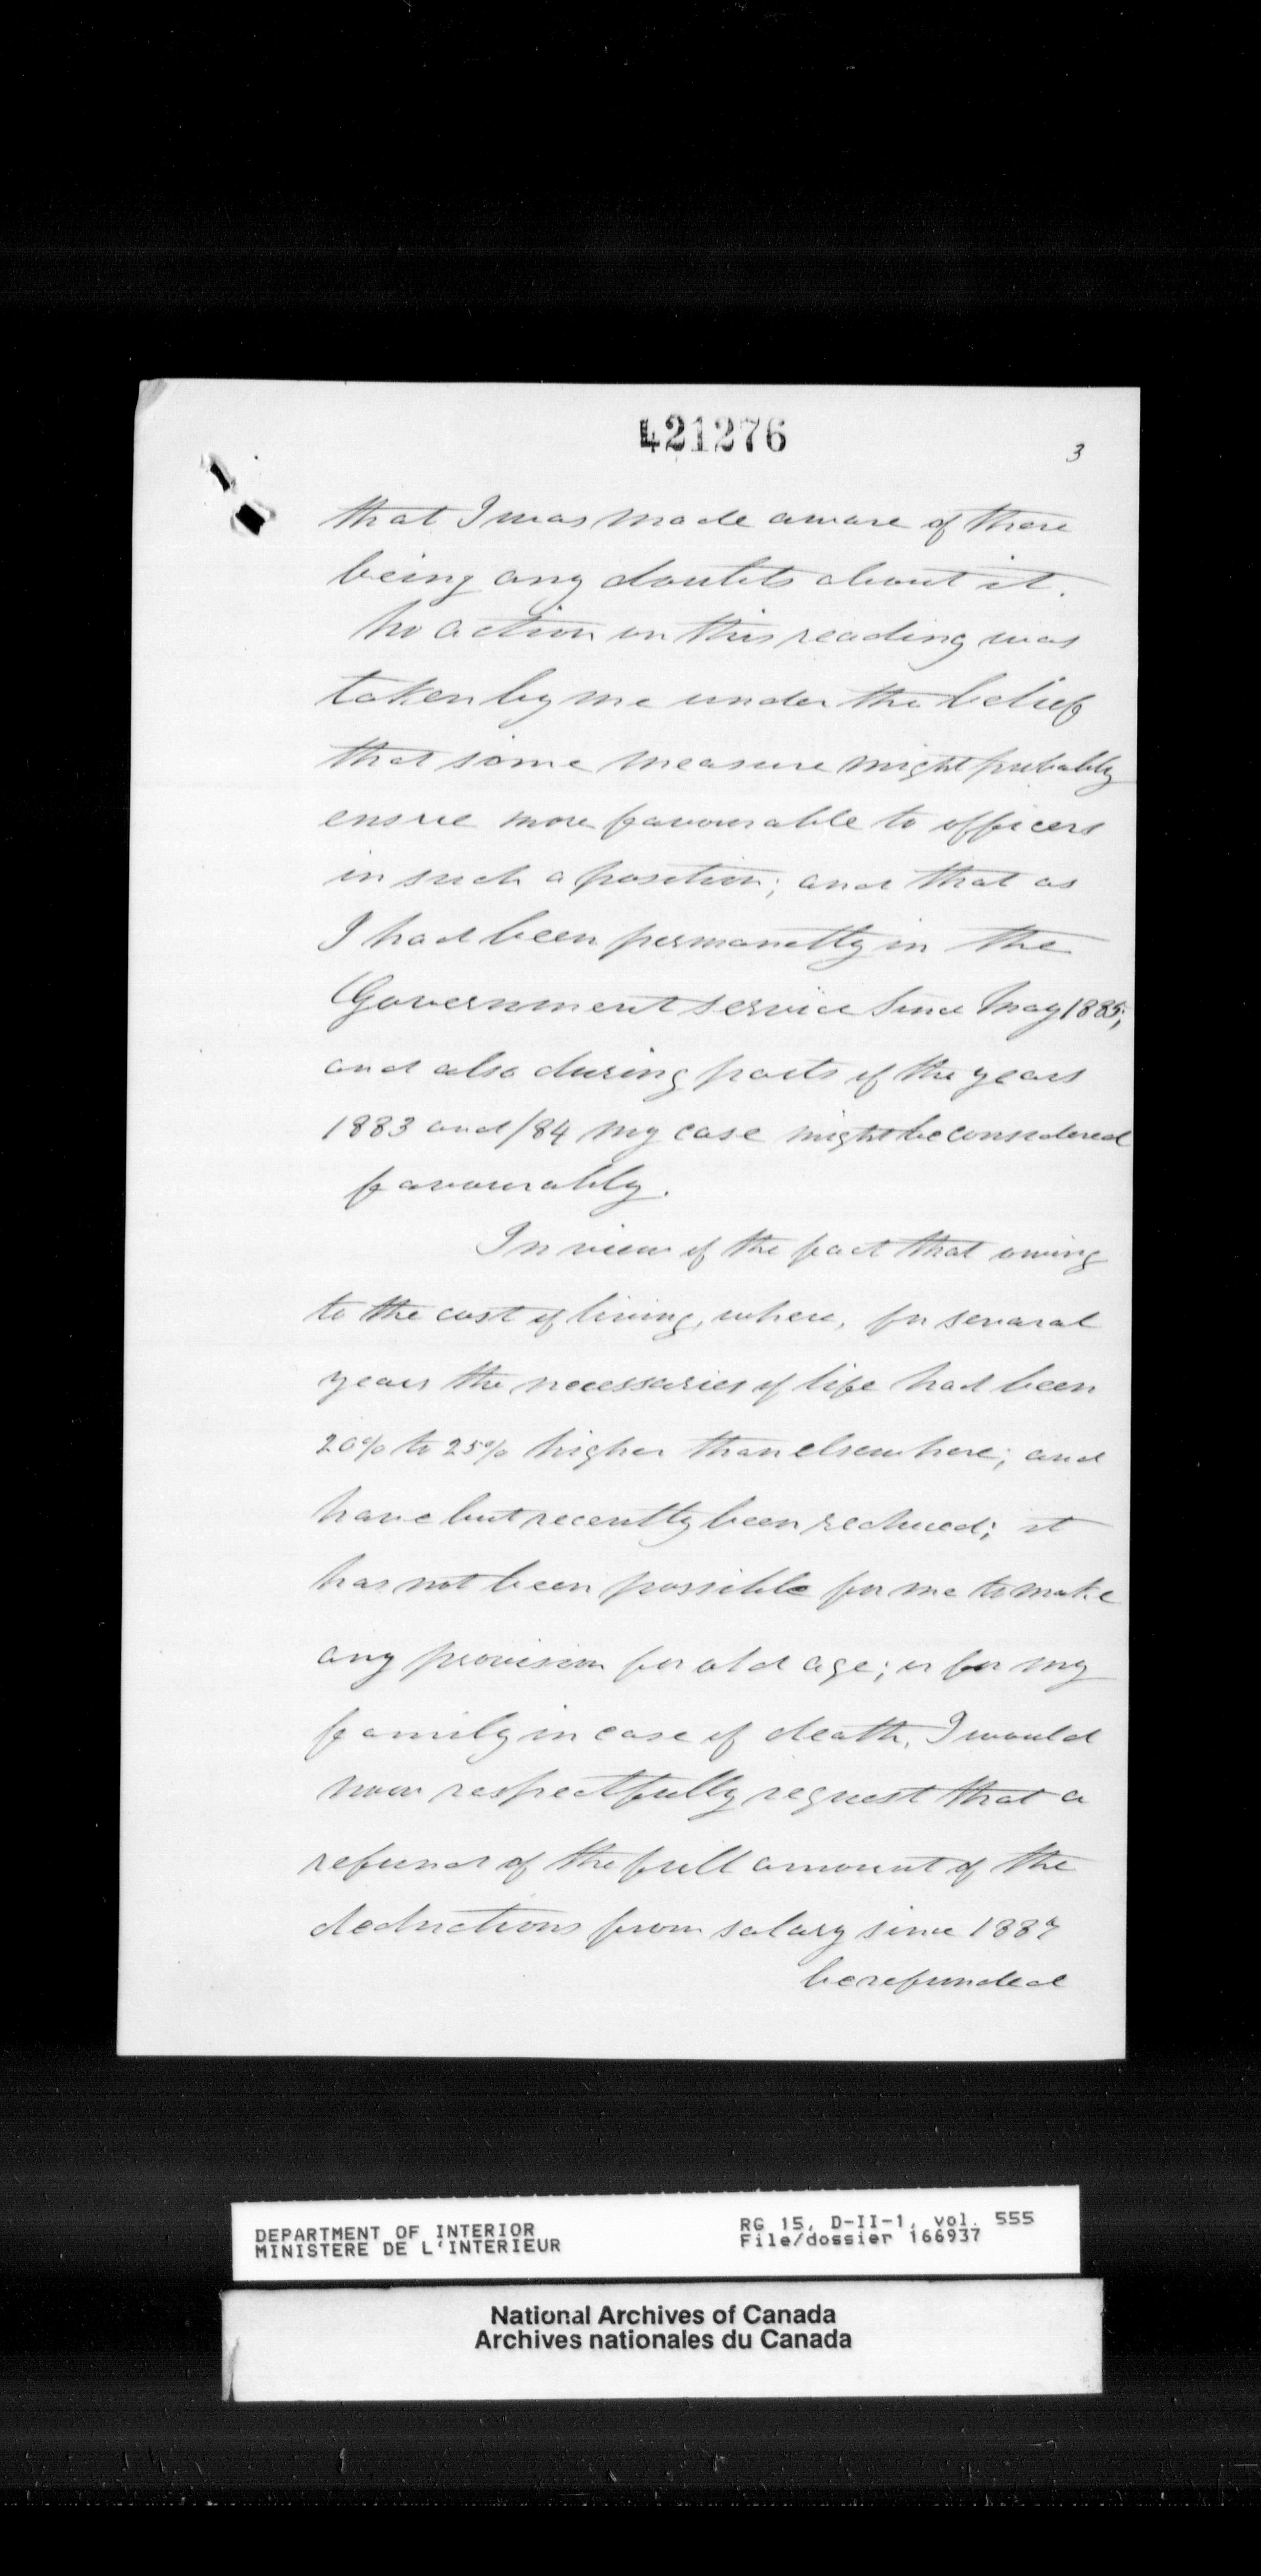 421276
3
that I was made aware of there
being any doubts about it.
No action on this reading was
taken by me under the belief
that some measure might probably
ensue more favourable to officers
in such a position; and that as
I had been permanetly in the
Government service since May 1885;
and also during parts of the years
1883 and /84 my case might be considered
favourably.
In view of the fact that owing
to the cost of living, where, for several
years the necessaries of life had been
20% to 25% higher than elsewhere; and
have but recently been reduced; it
has not been possible for me to make
any provision for old age; or for my
family in case of death, I would
now respectfully request that a
refund of the full amount of the
deductions from salary since 1887
be refunded
DEPARTMENT OF INTERIOR
MINISTERE DE L'INTERIEUR
RG 15, D-II-1, vol. 555
File/dossier 166937
National Archives of Canada
Archives nationales du Canada